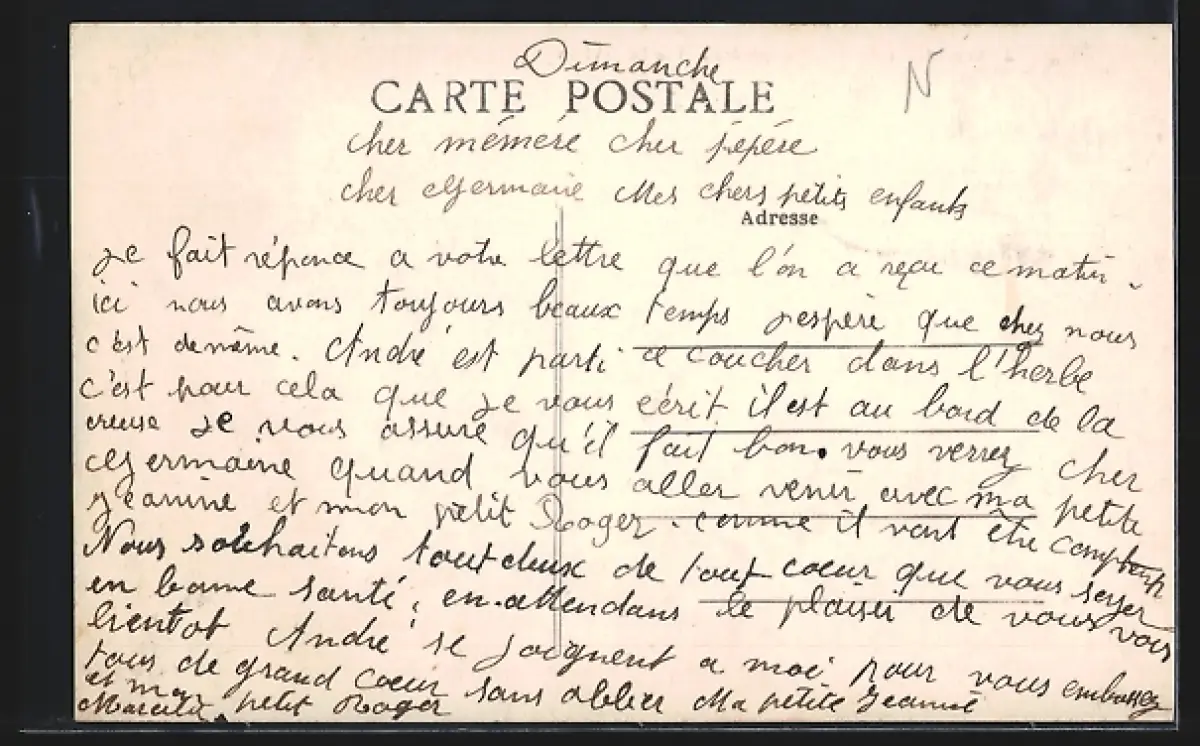 Dimanche
N
CARTE POSTALE
cher mémère cher pépére
cher Germaine Mes chers petits enfants
Adresse
Je fait réponce a votre lettre que l'on a reçu ce matin.
ici nous avons toujours beaux temps j'espère que chez nous
c'est de même. André est parti ce coucher dans l'herbe
c'est pour cela que je vous écrit il est au bord de la
creuse Je vous assure qu'il fait bon. vous verrez cher
Germaine quand vous aller venir avec ma petite
Jeanine et mon petit Roger. comme il vont être comptents
Nous souhaitons tout deux de tout coeur que vous soyer
en bonne santé, en attendans le plaisir de vous voir
bientot André se joignent a moi pour vous embrassez
tous de grand coeur sans oblier Ma petite Jeanine
et mon petit Roger